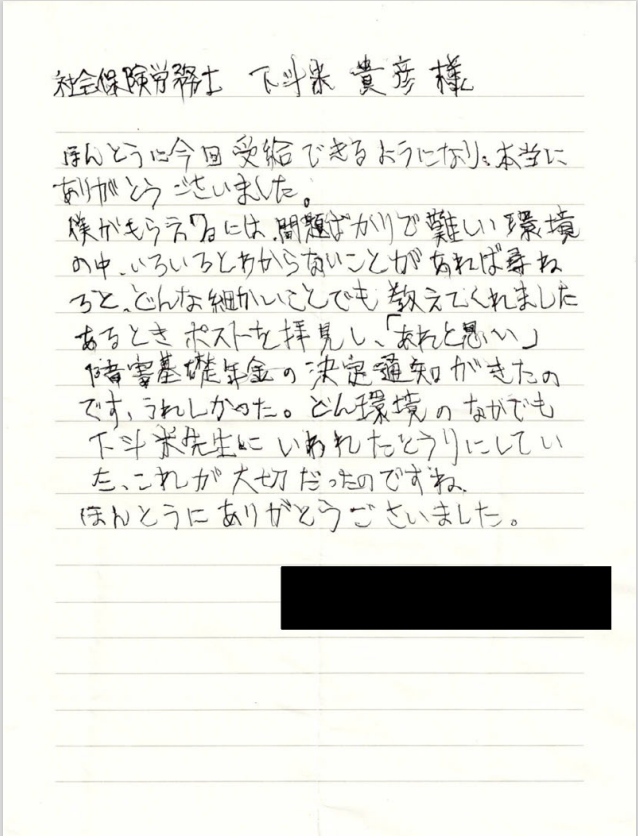 社会保険労務士 下斗米 貴彦 様
ほんとうに今回 受給できるようになり、本当に
ありがとうございました。
僕がもらえるには、問題ばかりで難しい環境
の中、いろいろとわからないことがあれば尋ね
ると、どんな細かいことでも教えてくれました
あるときポストを拝見し、「あれと思い」
障害基礎年金の決定通知がきたの
です、うれしかった。どん環境のなかでも
下斗米先生にいわれたとうりにしてい
た、これが大切だったのですね、
ほんとうにありがとうございました。